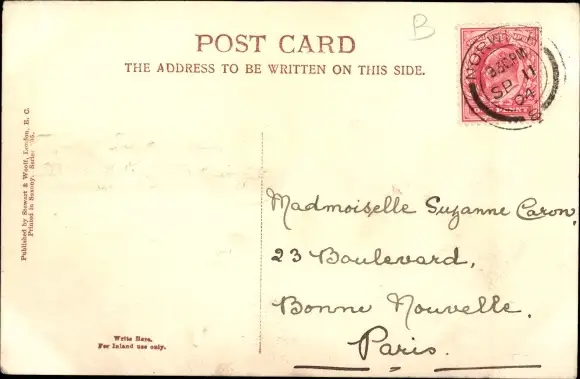 B
POST CARD
THE ADDRESS TO BE WRITTEN ON THIS SIDE.
NORWICH
8.30PM
SP 11
04
Published by Stewart & Woolf, London, E. C.
Printed in Saxony. Series
Madmoiselle Suzanne Caron,
23 Boulevard,
Bonne Nouvelle,
Paris.
Write Here.
For Inland use only.